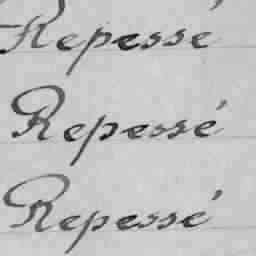 Repessé
Repessé
Repessé